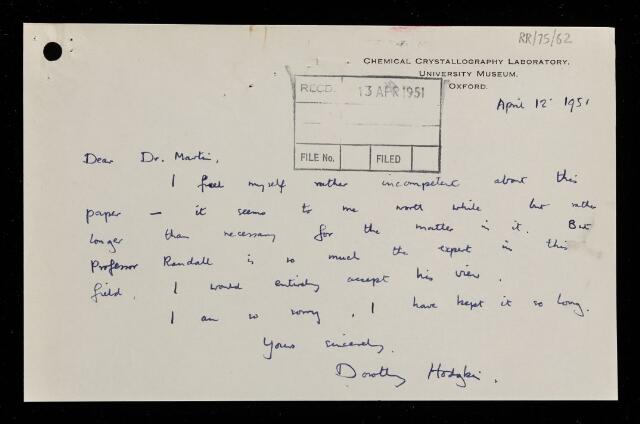 RR/75/62
CHEMICAL CRYSTALLOGRAPHY LABORATORY,
UNIVERSITY MUSEUM,
OXFORD.
RECD. 13 APR 1951
FILE No. FILED
April 12 1951
Dear Dr. Martin,
I feel myself rather incompetent about this
paper – it seems to me worth while but rather
longer than necessary for the matter in it. But
Professor Randall is so much the expert in this
field, I would entirely accept his view.
I am so sorry, I have kept it so long.
Yours sincerely,
Dorothy Hodgkin.